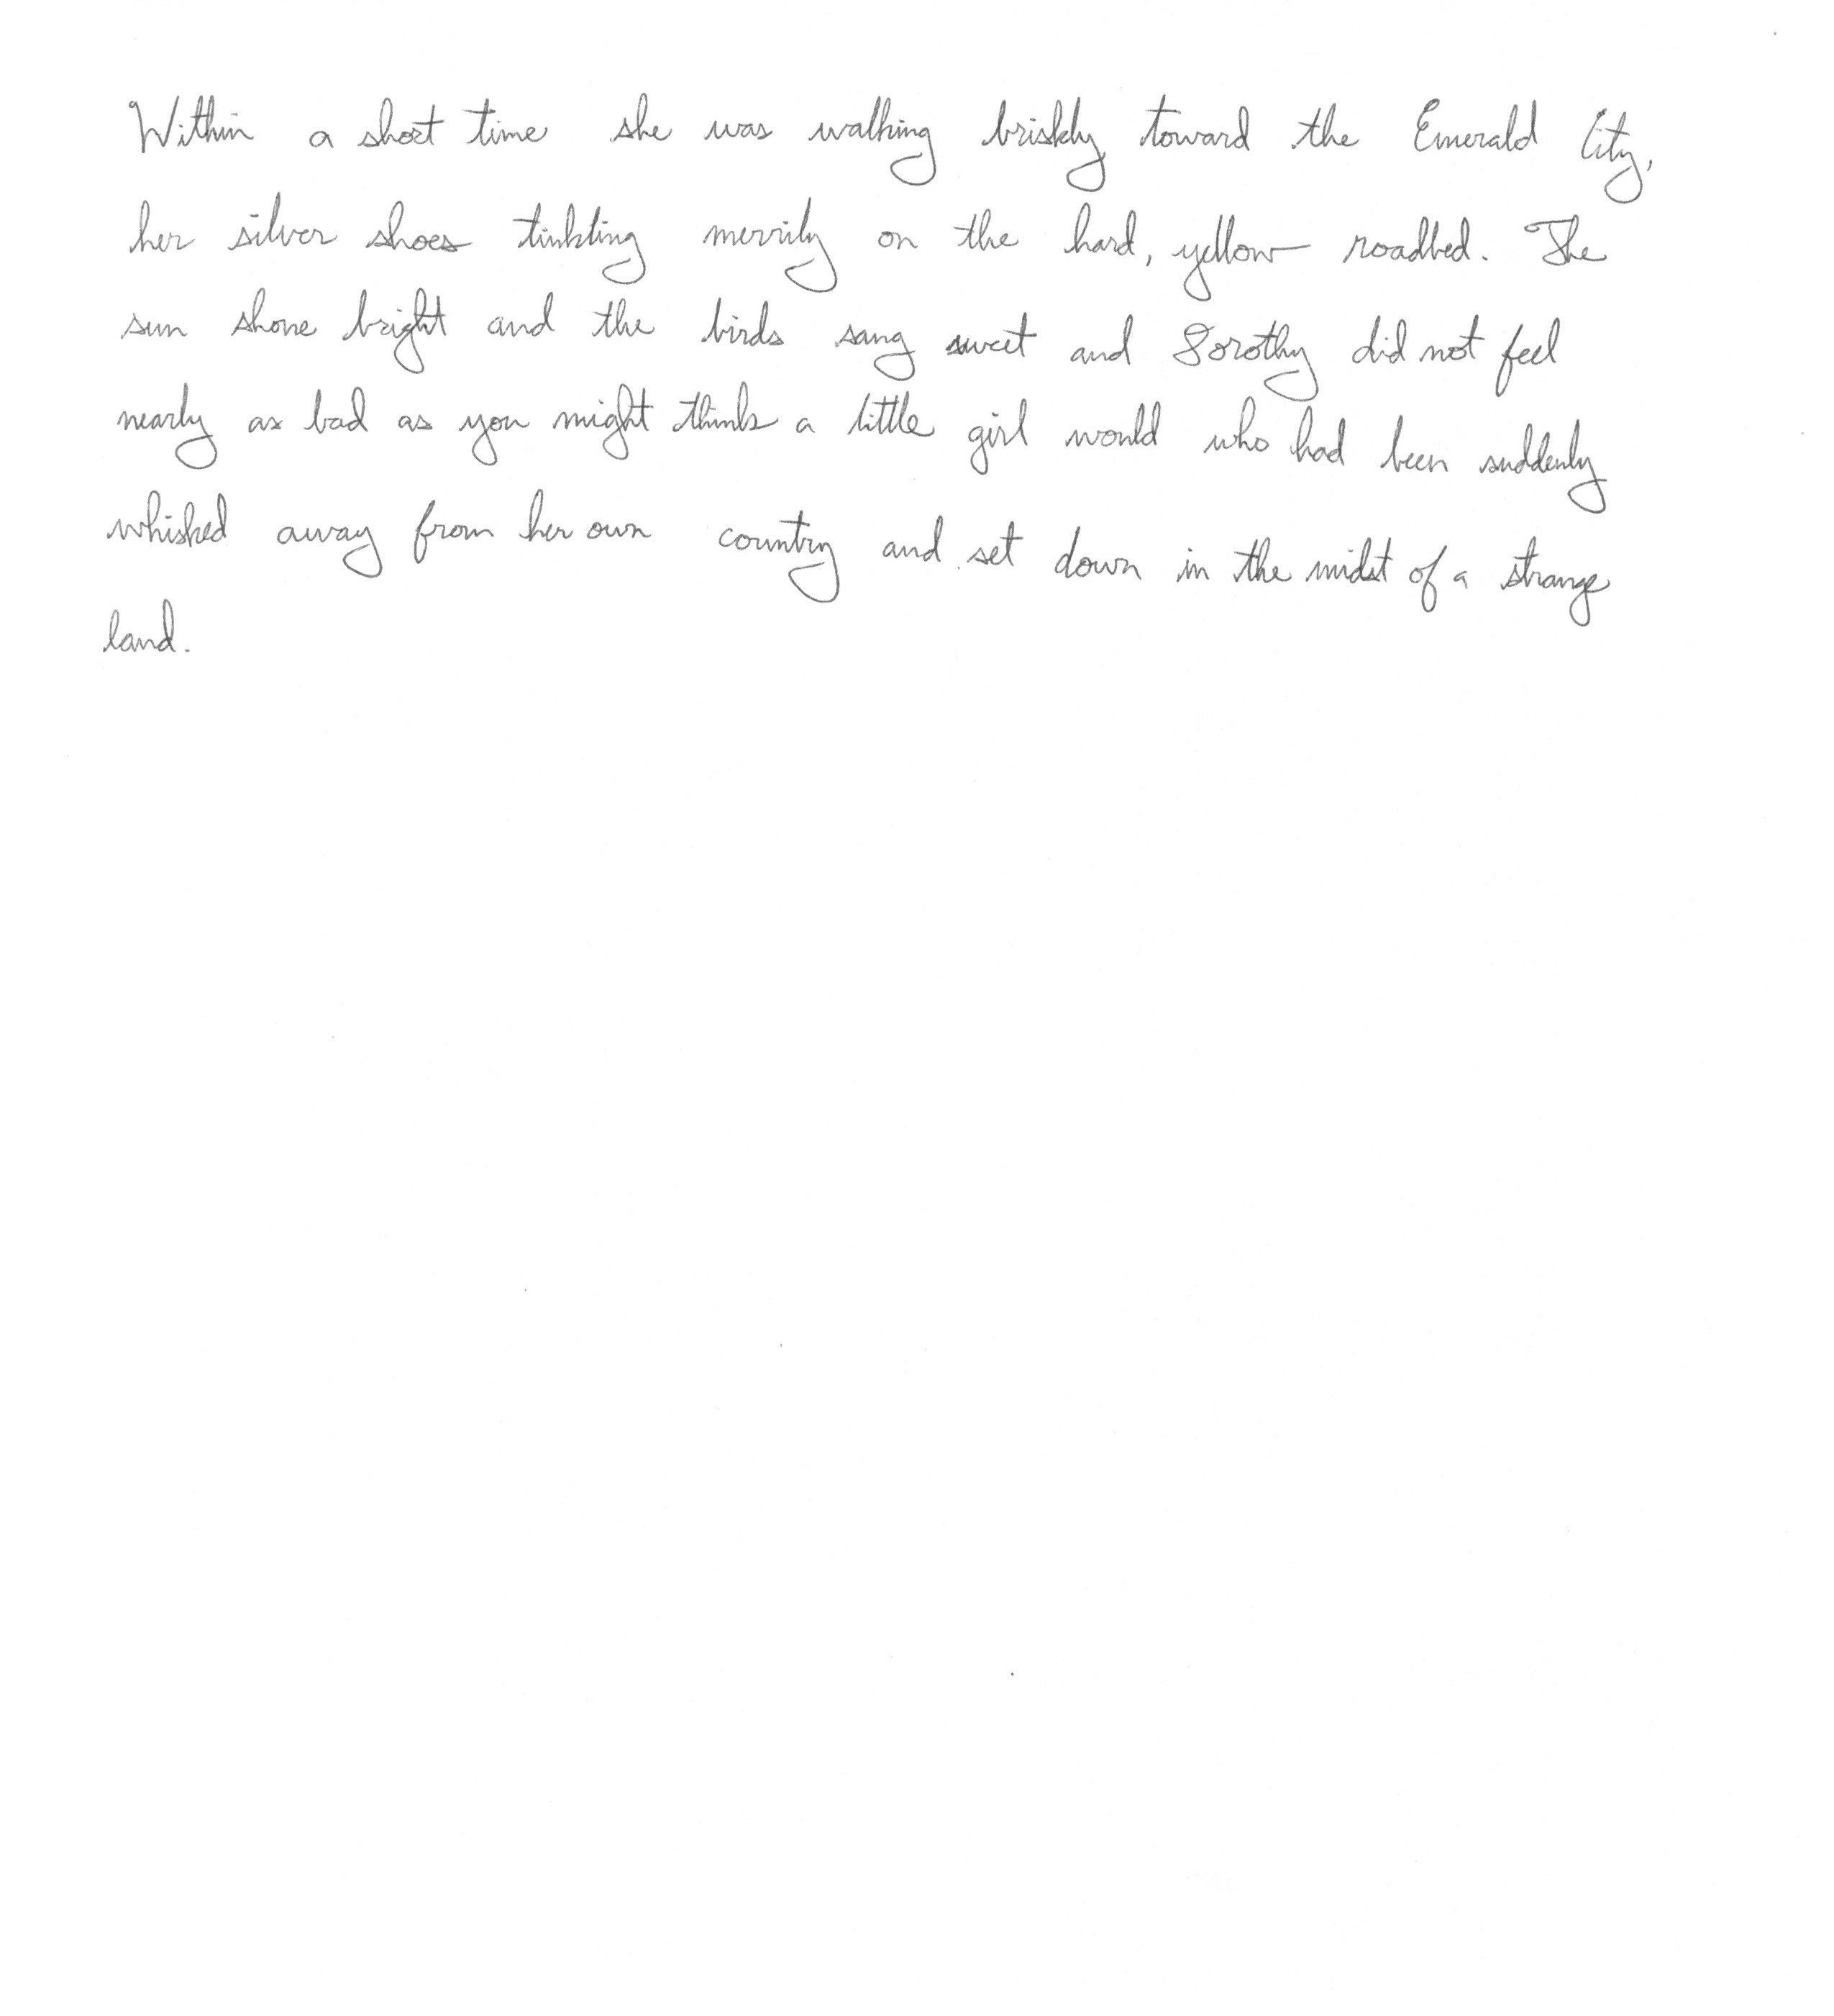 Within a short time she was walking briskly toward the Emerald City,
her silver shoes tinkling merrily on the hard, yellow roadbed. The
sun shone bright and the birds sang sweet and Dorothy did not feel
nearly as bad as you might think a little girl would who had been suddenly
whisked away from her own country and set down in the midst of a strange
land.